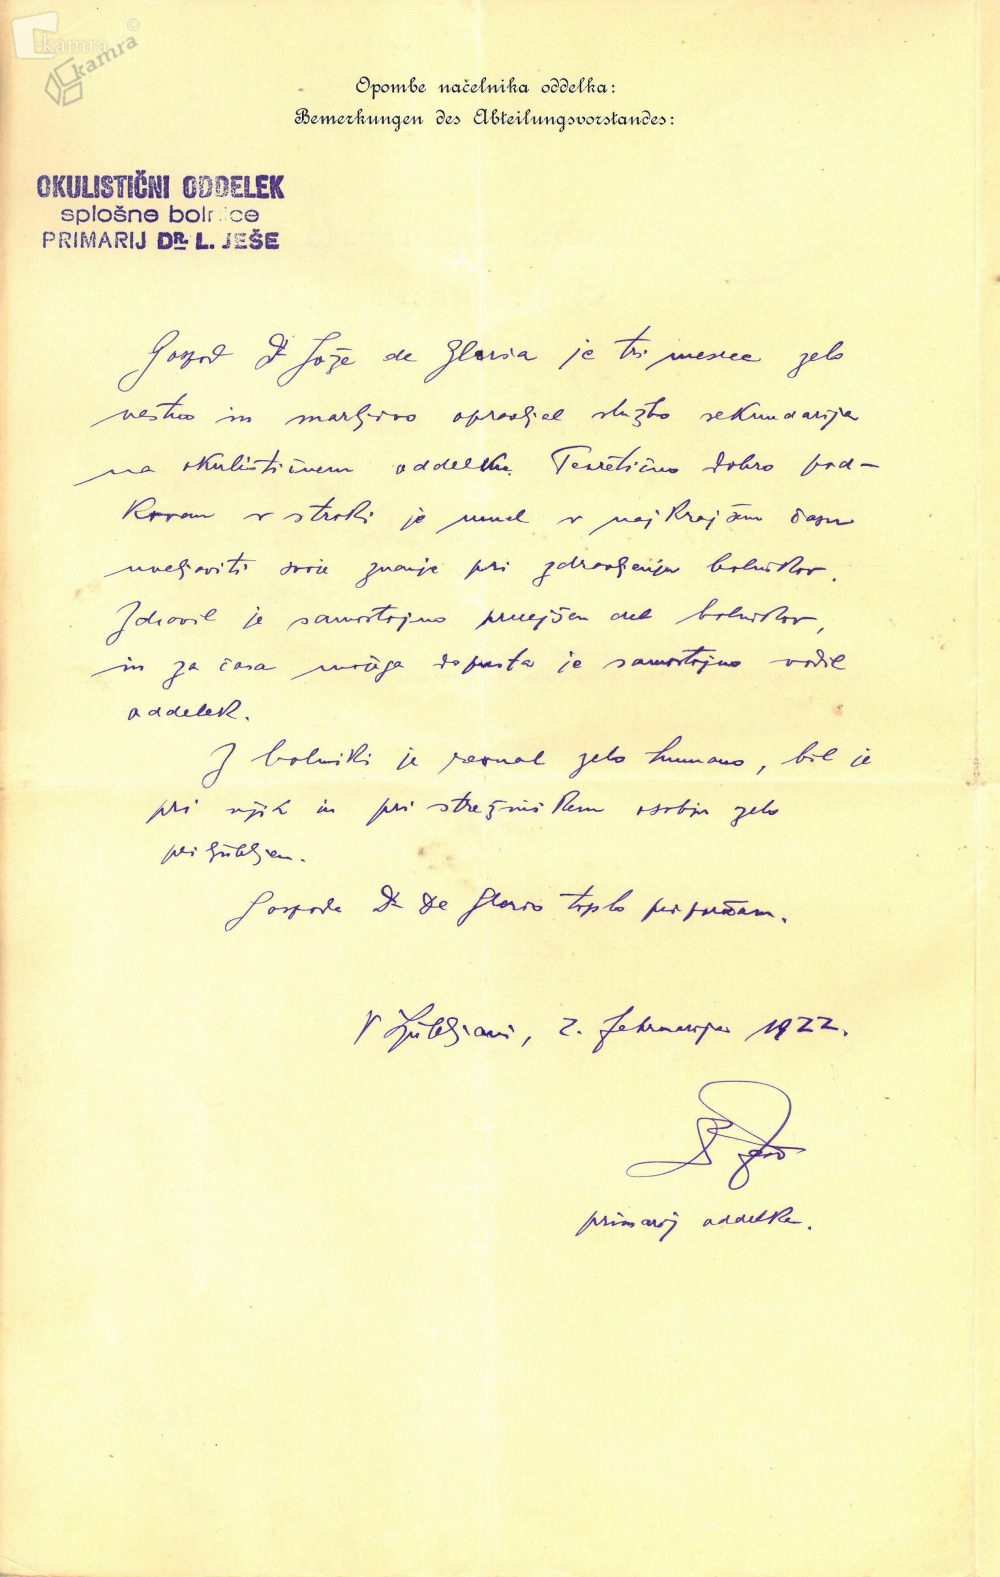 kamra
kamra
Opombe načelnika oddelka:
Bemerkungen des Abteilungsvorstandes:
OKULISTIČNI ODDELEK
splošne bolnice
PRIMARIJ DR. L. JEŠE
Gospod Dr Jože de Gloria je tri mesece zelo
vestno in marljivo opravljal službo sekundarija
na okulističnem oddelku. Teoretično dobro pod-
kovan v stroki je umel v najkrajšem času
uveljaviti svoje znanje pri zdravljenju bolnikov.
Zdravil je samostojno precejšen del bolnikov,
in za časa mojega dopusta je samostojno vodil
oddelek.
Z bolniki je ravnal zelo humano, bil je
pri njih in pri strežniškem osobju zelo
priljubljen.
Gospoda Dr De Gloria toplo priporočam.
V Ljubljani, 2. februarija 1922.
primarij oddelka.